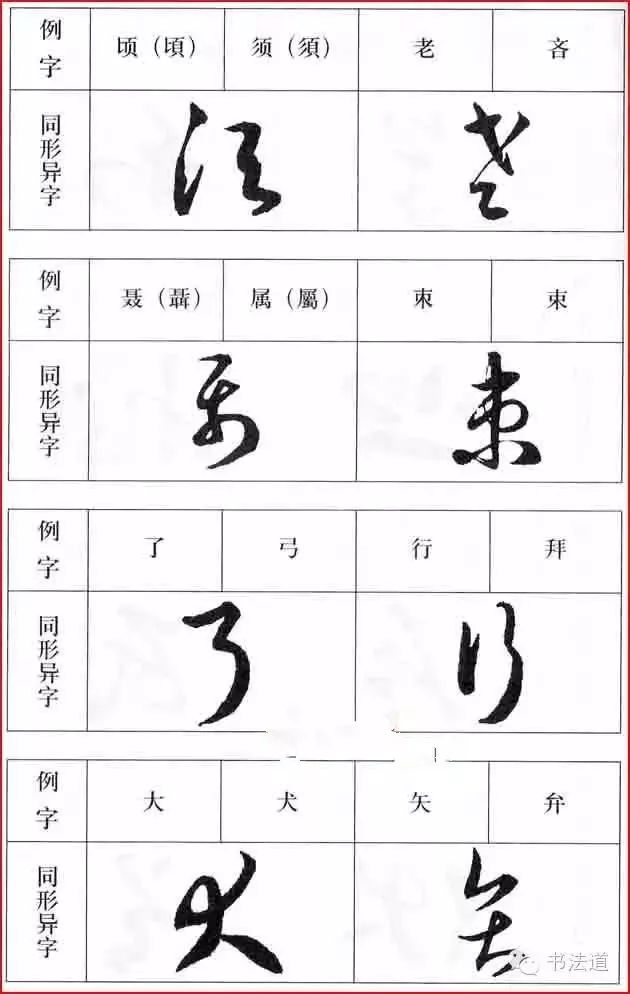 例字 顷（頃） 须（須） 老 吝
同形异字
例字 聂（聶） 属（屬） 朿 束
同形异字
例字 了 弓 行 拜
同形异字
例字 大 犬 矢 弁
同形异字
书法道